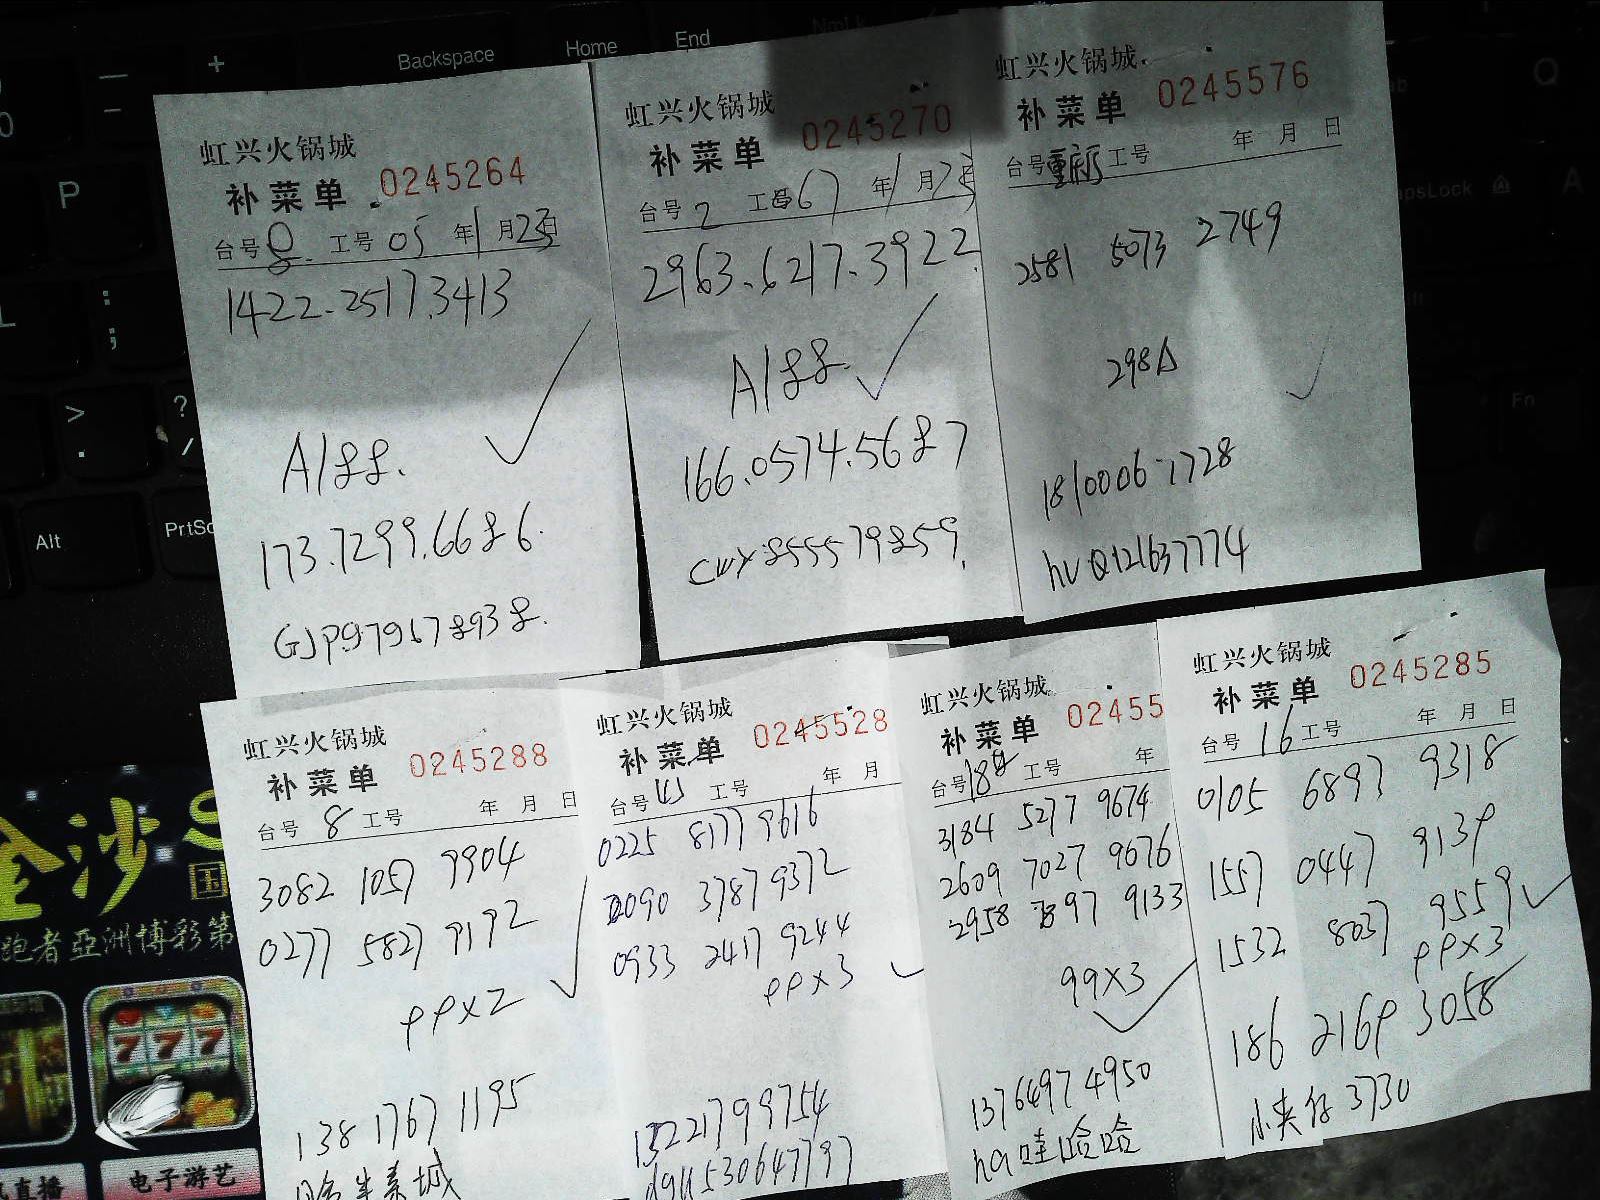 Backspace
Home
End
P
Alt
PrtSc
Fn
Q
A
虹兴火锅城
补菜单 0245264
台号 8 工号 05 年 1 月 23 日
1422.2517.3413
A188.
173.7299.6686.
GJP979578938.
虹兴火锅城
补菜单 0245270
台号 2 工号 67 年 1 月 23
2963.6217.3922.
A188.
166.0574.5687
CWY855579859.
虹兴火锅城
补菜单 0245576
台号 重新 工号 年 月 日
2581 5073 2749
298A
1810006-1728
hVQ121637774
虹兴火锅城
补菜单 0245288
台号 8 工号 年 月 日
3082 1057 9904
0277 5827 9192
99X2
138 1767 1195
虹兴火锅城
补菜单 0245528
台号 工号 年 月
0225 8177 9616
2090 3787 9372
0933 2417 9244
99X3
虹兴火锅城
补菜单 02455
台号 18 工号 年
3184 5277 9674
2609 7027 9676
2958 7897 9133
99X3
1376497 4950
ha哇哈哈
虹兴火锅城
补菜单 0245285
台号 16 工号 年 月 日
0105 6897 9318
1557 0447 9139
1532 8037 9559
99X3
186 2169 3058
小夹仔 3730
金沙
跑者亞洲博彩第
777
直播
电子游艺